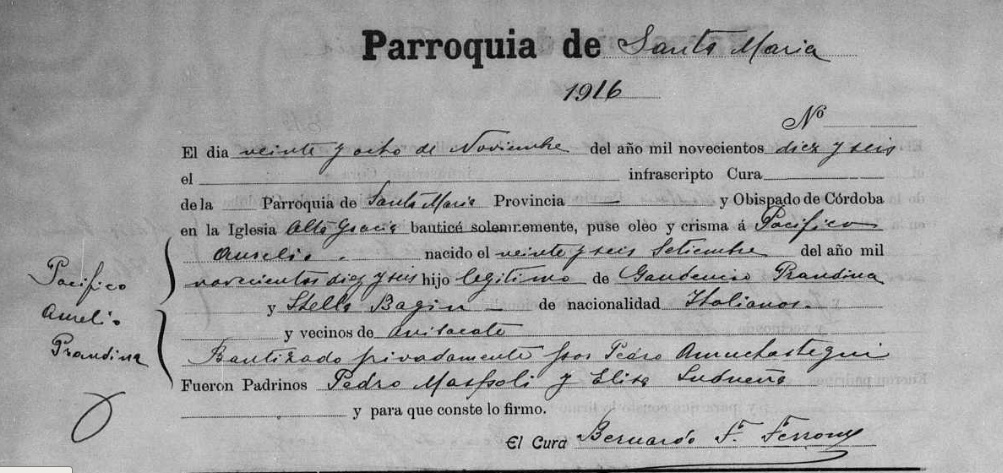 Parroquia de Santa Maria
1916
Nº
El dia veinte y ocho de Noviembre del año mil novecientos diez y seis
el infrascripto Cura
de la Parroquia de Santa Maria Provincia y Obispado de Córdoba
en la Iglesia Alta Gracia bauticé solemnemente, puse oleo y crisma á Pacifico
Aurelio nacido el veinte y seis Setiembre del año mil
novecientos diez y seis hijo legitimo de Gaudencio Prandina
y Stella Bagin de nacionalidad Italianos.
y vecinos de
Bautizado privadamente por Pedro Amuchastegui
Fueron Padrinos Pedro Maspoli y Elisa Ludueña
y para que conste lo firmo.
El Cura Bernardo F. Ferrony
Pacifico
Aurelio
Prandina